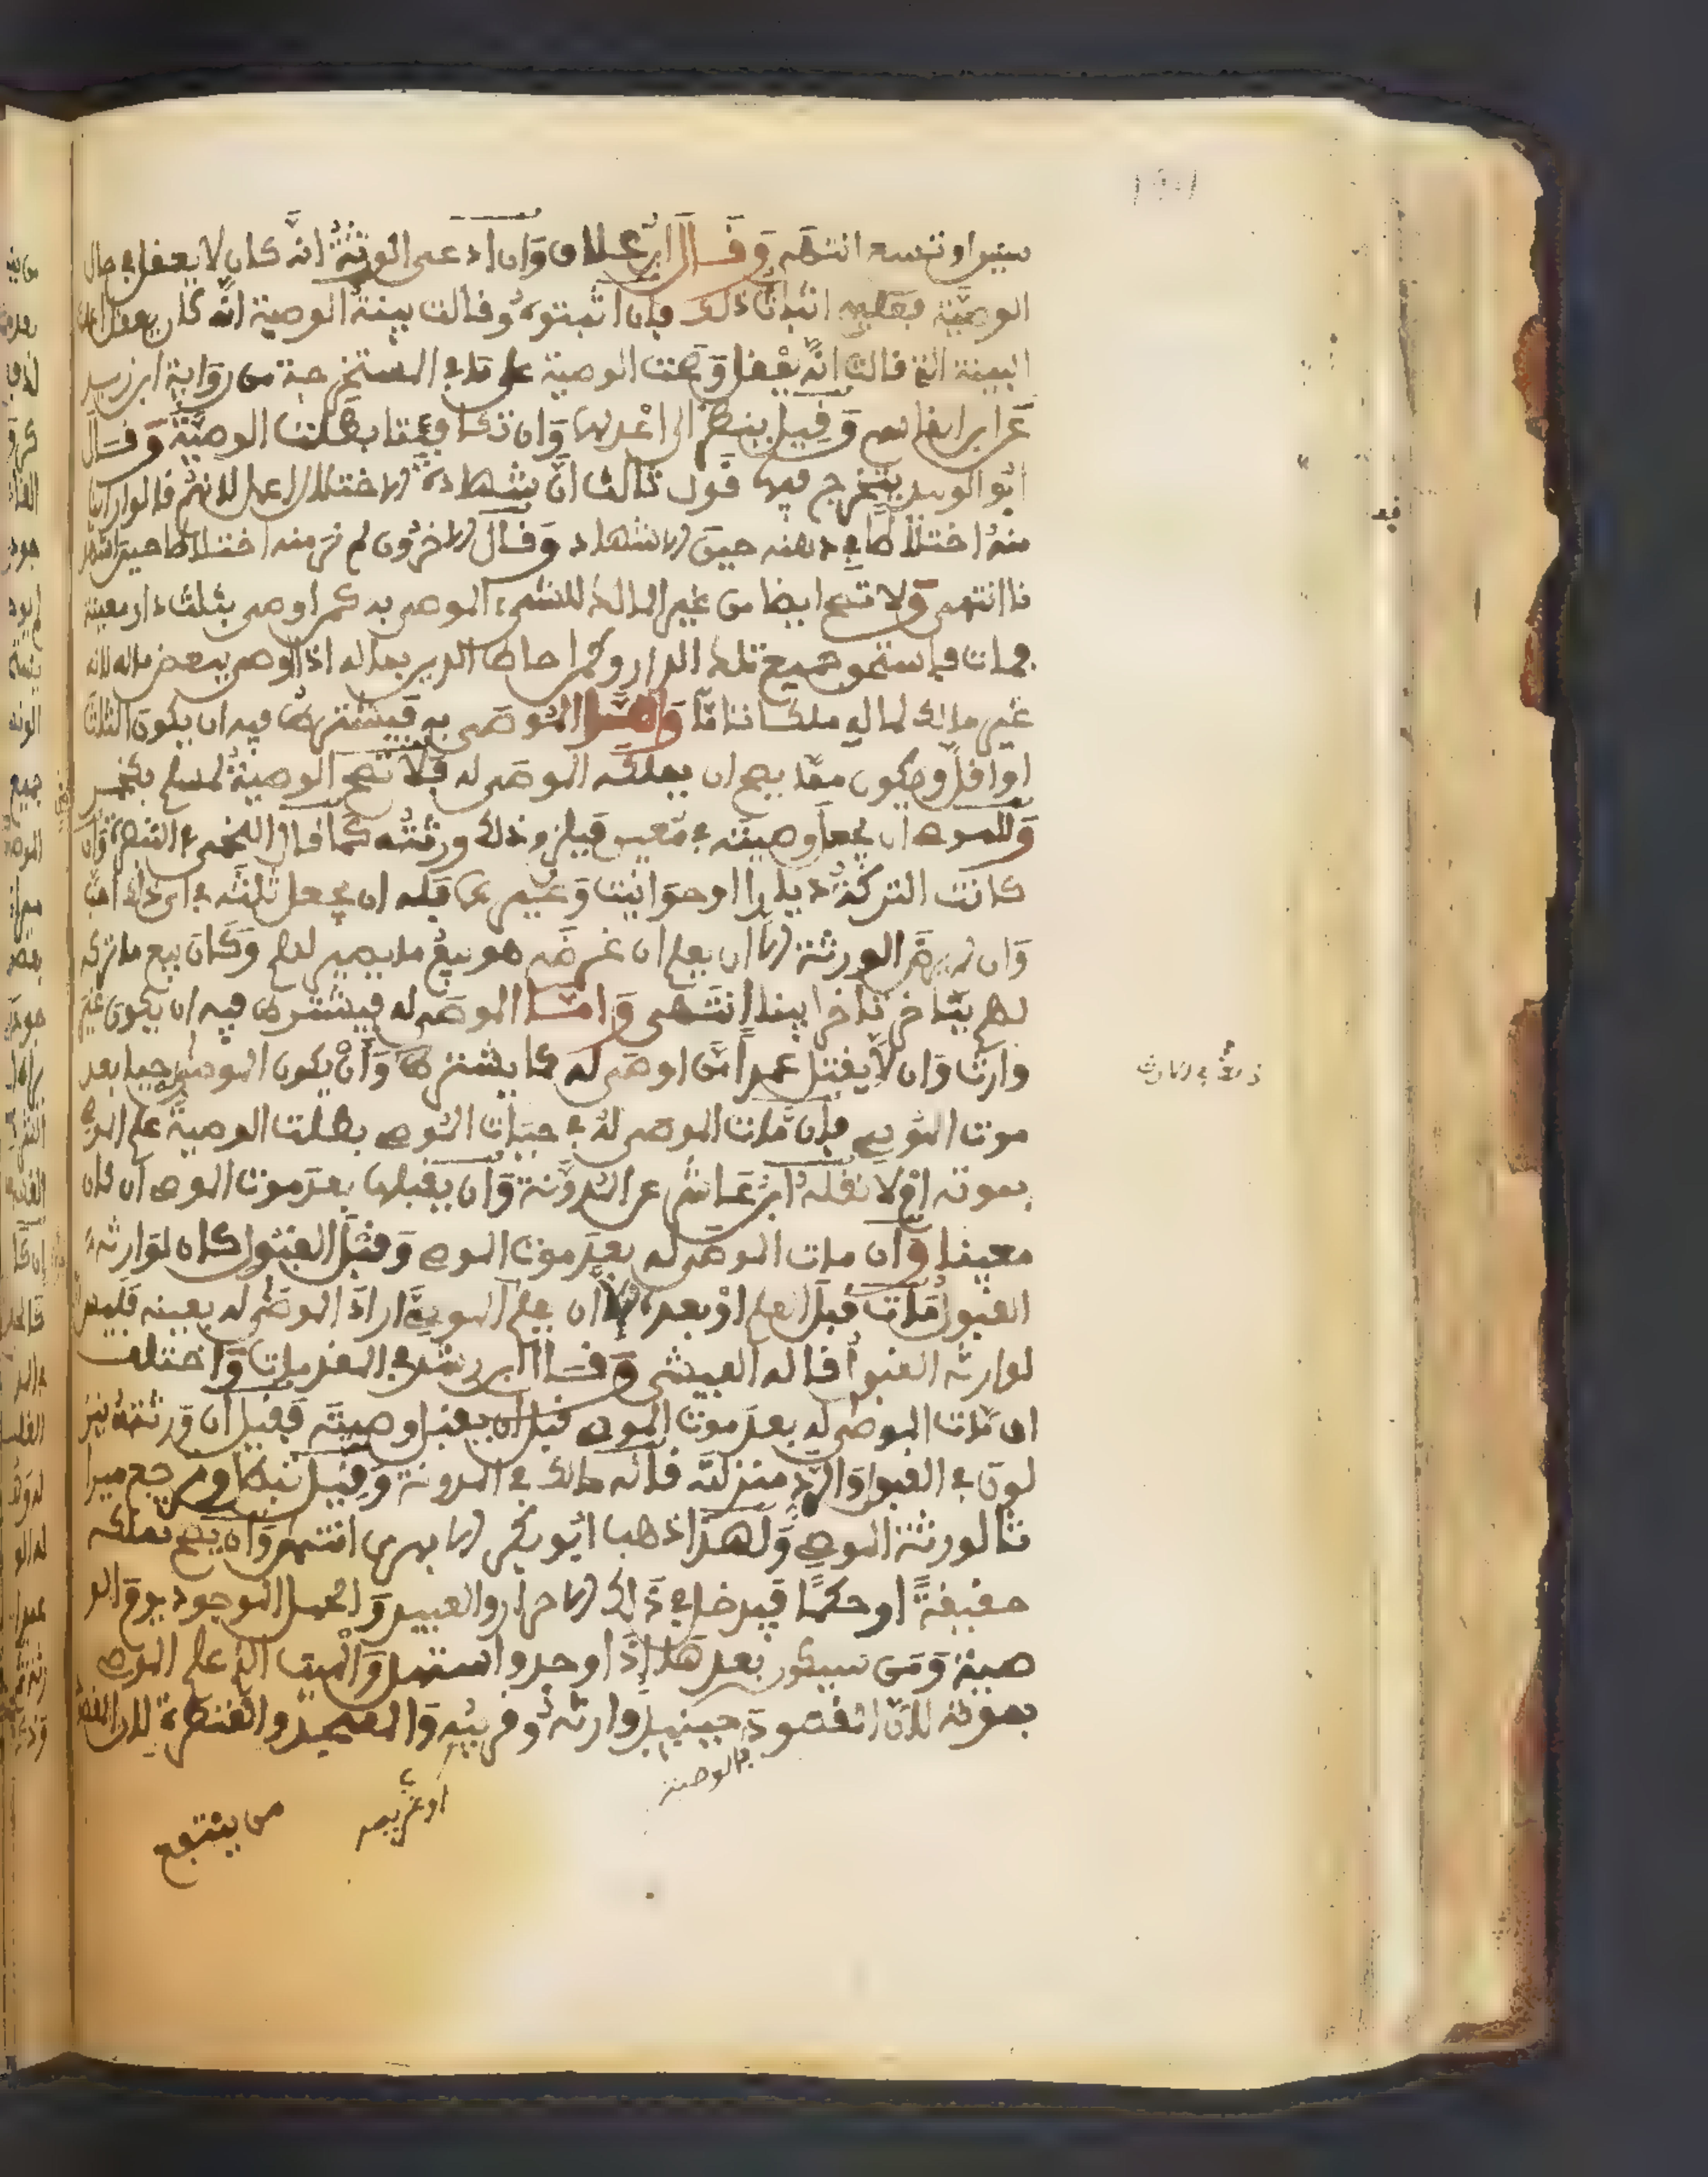 سنين او تسع انتهى وقال ابن علاق وان ادعى الورثة انه كان لا يعقل في حال
الوصية فعليهم اثبات ذلك فان اثبتوه وقالت بينة الوصية انه كان يعقل
البينة التي قالت انه يعقل وصحت الوصية على ما في المستخرجة من رواية ابي زيد
عن ابن القاسم وقيل ينظر الى اعدلها وان تكافيتا بطلت الوصية وقال
ابو الوليد يتخرج فيها قول ثالث ان شهادة الاختلال اعمل لانهم قالوا راينا
منه اختلاطا في ذهنه حين الاشهاد وقال الاخرون لم نر منه اختلاطا حين اشهد
نا انتهى ولا تصح ايضا من غير المالك للشيء الموصى به كمن اوصى بثلث دار معينة
فمات فاستحق جميع تلك الدار وكمن احاط الدين بماله اذا اوصى ببعض ماله لانه
غير مالك لماله ملكا تاما واما الموصى به فيشترط فيه ان يكون الثلث
او اقل ويكون مما يصح ان يملكه الموصى له فلا تصح الوصية لمسلم بخمر
وللموصي ان يجعل وصيته في معين فيلزم ذلك ورثته كما قال اللخمي في التبصرة وان
كانت التركة ديارا او حوانيت وغيرها فله ان يجعل ثلثه في اي ذلك احب
وان لم يرض الورثة الا ان يعلم ان غرضه هو بيع ما يصير لهم وكان بيع ما تركه
لهم يتاخر تاخرا بينا انتهى واما الموصى له فيشترط فيه ان يكون غير
وارث وان لا يقتل عمدا من اوصى له كما يشترط وان يكون الموصى حيا بعد
موت الموصي فان مات الموصى له في حيات الموصي بطلت الوصية علم الموصي
بموته او لا نقله ابن عاشر عن المدونة وان يقبلها بعد موت الموصي ان كان
معينا وان مات الموصى له بعد موت الموصي وقبل القبول كان لوارثه
القبول مات قبل العلم او بعده الا ان يعلم الموصي اراد الموصى له بعينه فليس
لوارثه القبول قاله الفيشي وقال ابن رشد في المقدمات واختلف
ان مات الموصى له بعد موت الموصي قبل ان يقبل وصيته فقيل ان ورثته ينز
لون في القبول والرد منزلته قاله مالك في المدونة وقيل تبطل وترجع ميرا
ثا لورثة الموصي ولهذا ذهب ابو بكر الابهري انتهى وان يصح تملكه
حقيقة او حكما فيدخل في ذلك الاحرار والعبيد والحمل الموجود يوم الو
صية ومن سيكون بعدها اذا وجد واستهل والميت الذي علم الموصي
بموته لان المقصود حينيذ وارثه وقريبه والمسجد والقنطرة لان القصد
بالوصية
او غريمه
من ينتفع